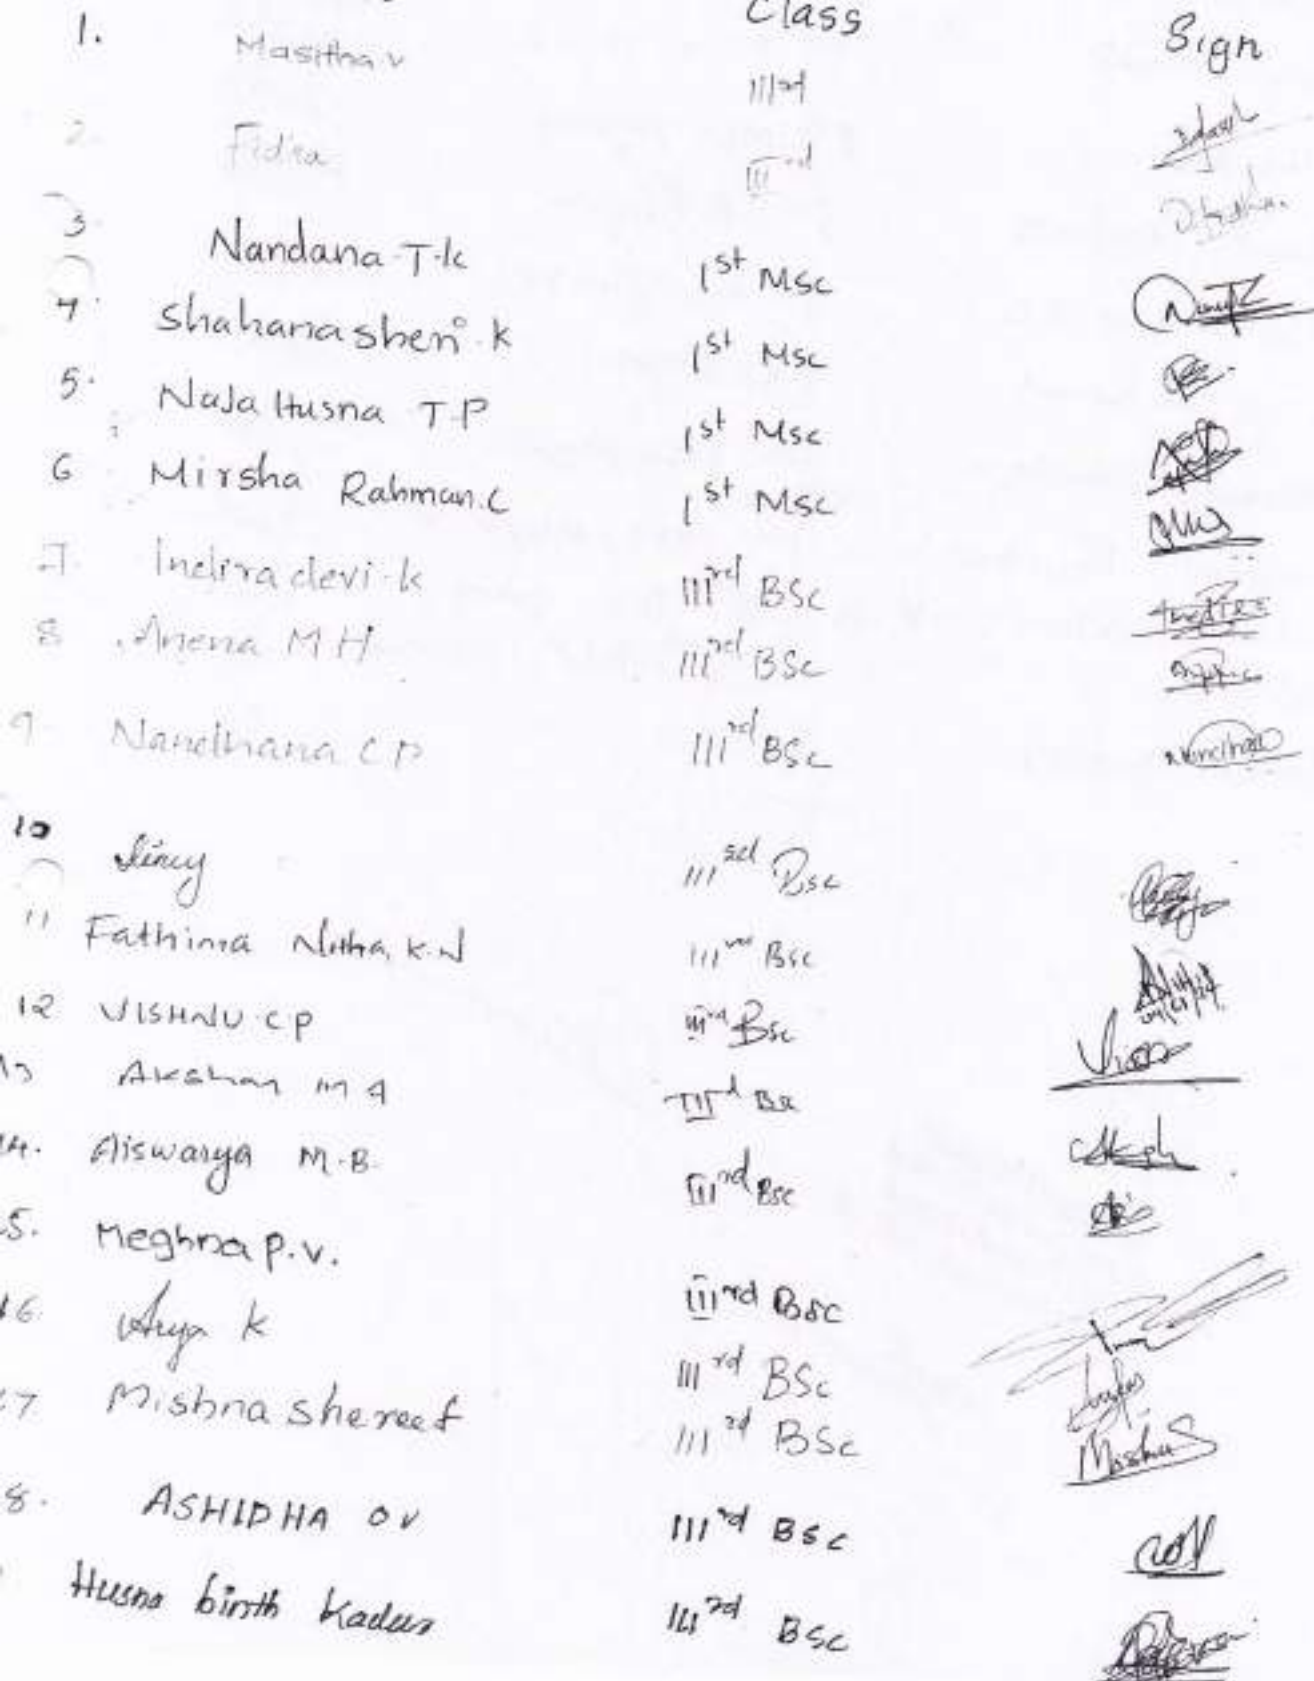 Class Sign
1. Masitha v IIIrd
2. Fidra IIIrd
3. Nandana T.K 1st Msc
4. Shahana sheri.k 1st Msc
5. Naja Husna T.P 1st Msc
6 Mirsha Rahman.C 1st Msc
7. Indira devi.k IIIrd BSc
8 Anena M H IIIrd BSc
9. Nandhana C P IIIrd BSc
10 Jincy IIIrd Bsc
11 Fathima K.N IIIrd BSc
12 VISHNU C P IIIrd Bsc
13 Akshay M A IIIrd Bsc
14. Aiswarya M.B. IIIrd BSc
15. Meghna P.V. IIIrd BSc
16. Arya K IIIrd BSc
17 Mishna shereef IIIrd BSc
18. ASHIDHA O V IIIrd BSc
Husna binth Kader IIIrd BSc